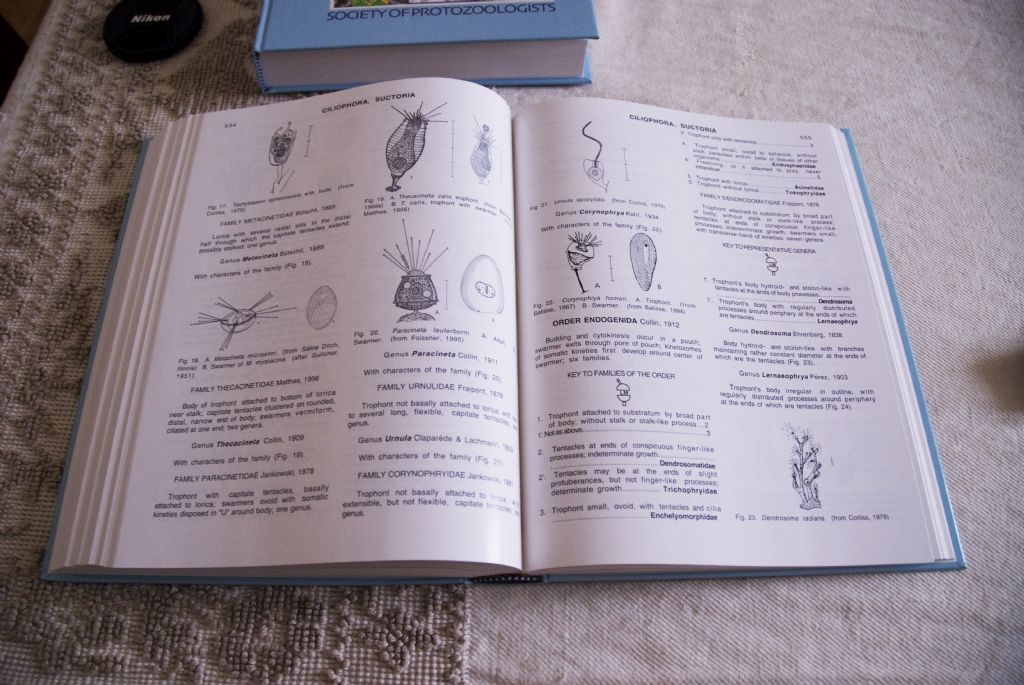 Nikon
SOCIETY OF PROTOZOOLOGISTS
534
CILIOPHORA, SUCTORIA
Corliss, 1979)
FAMILY METACINETIDAE Bütschli, 1889
Lorica with several radial slits in the distal
half through which the capitate tentacles extend;
possibly stalked; one genus.
Genus Metacineta Bütschli, 1889
With characters of the family (Fig. 18).
Fig. 18. A. Metacineta micraster. (from Saline Ditch,
Illinois) B. Swarmer of M. mystacina. (after Guilcher,
1951).
FAMILY THECACINETIDAE Matthes, 1956
Body of trophont attached to bottom of lorica
near stalk; capitate tentacles clustered on rounded,
distal, narrow end of body; swarmers vermiform,
ciliated at one end; two genera.
Genus Thecacineta Collin, 1909
With characters of the family (Fig. 19).
FAMILY PARACINETIDAE Jankowski, 1978
Trophont with capitate tentacles, basally
attached to lorica; swarmers ovoid with somatic
kineties disposed in "U" around body; one genus.
Fig. 19. A. Thecacineta calix, trophont. (from
1969a) B. T. calix, trophont with swarmer.
Matthes, 1956)
Fig. 20. Paracineta lauterborni A. Adult,
Swarmer. (from Foissner, 1995)
Genus Paracineta Collin, 1911
With characters of the family (Fig. 20)
FAMILY URNULIDAE Fraipont, 1878
Trophont not basally attached to lorica; with
to several long, flexible, capitate tentacles;
genus.
Genus Urnula Claparède & Lachmann,
With characters of the family (Fig. 21)
FAMILY CORYNOPHRYIDAE Jankowski,
Trophont not basally attached to lorica,
extensible, but not flexible, capitate tentacles,
genus.
CILIOPHORA, SUCTORIA
535
Fig. 21. Urnula epistylidis (from Corliss, 1979)
Genus Corynophrya Kahl, 1934
With characters of the family (Fig. 22).
A
B
Fig. 22. Corynophrya homari. A. Trophont. (from
Batisse, 1967) B. Swarmer. (from Batisse, 1994)
ORDER ENDOGENIDA Collin, 1912
Budding and cytokinesis occur in a pouch;
swarmer exits through pore of pouch; kinetosomes
of somatic kineties first develop around center of
swarmer; six families.
KEY TO FAMILIES OF THE ORDER
1. Trophont attached to substratum by broad part
of body; without stalk or stalk-like process....2
1'. Not as above.......................................3
2. Tentacles at ends of conspicuous finger-like
processes; indeterminate growth....................
Dendrosomatidae
2'. Tentacles may be at the ends of slight
protuberances, but not finger-like processes;
determinate growth............ Trichophryidae
3. Trophont small, ovoid, with tentacles and cilia
............................ Enchelyomorphidae
3'. Trophont only with tentacles....................4
4. Trophont small, ovoid to spheroid, without
stalk, parasites within cells or tissues of other
organisms.................... Endosphaeridae
4'. Freeliving, or if attached to prey, never
intracellular....................5
5. Trophont with lorica.................... Acinetidae
5'. Trophont without lorica.............. Tokophryidae
FAMILY DENDROSOMATIDAE Fraipont, 1878
Trophont attached to substratum by broad part
of body, without stalk or stalk-like process;
tentacles at ends of conspicuous finger-like
processes; indeterminate growth; swarmers small,
with transverse band of kineties; seven genera.
KEY TO REPRESENTATIVE GENERA
1. Trophont's body hydroid- and stolon-like with
tentacles at the ends of body processes................
Dendrosoma
1'. Trophont's body with regularly distributed
processes around periphery at the ends of which
are tentacles.................... Lernaeophrya
Genus Dendrosoma Ehrenberg, 1838
Body hydroid- and stolon-like with branches
maintaining rather constant diameter at the ends of
which are the tentacles (Fig. 23).
Genus Lernaeophrya Pérez, 1903
Trophont's body irregular in outline, with
regularly distributed processes around periphery
at the ends of which are tentacles (Fig. 24).
Fig. 23. Dendrosoma radians. (from Corliss, 1979)